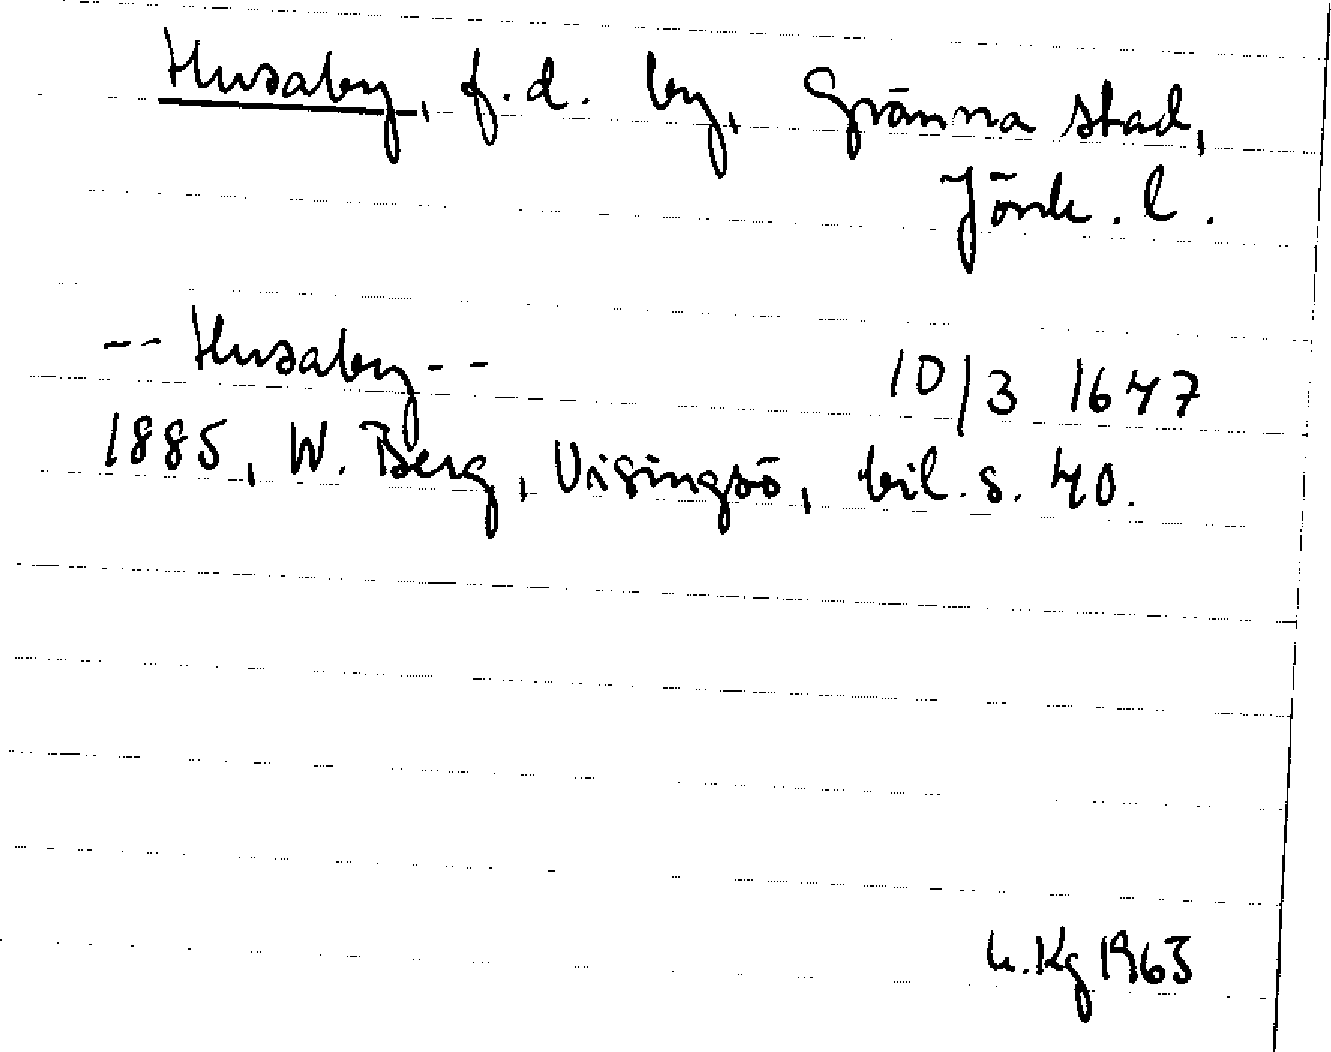 Husaby, f.d. by, Gränna stad,
Jönk. l.
-- Husaby -- 10/3 1647
1885, W. Berg, Visingsö, bil. s. 40.
h. Kg 1963